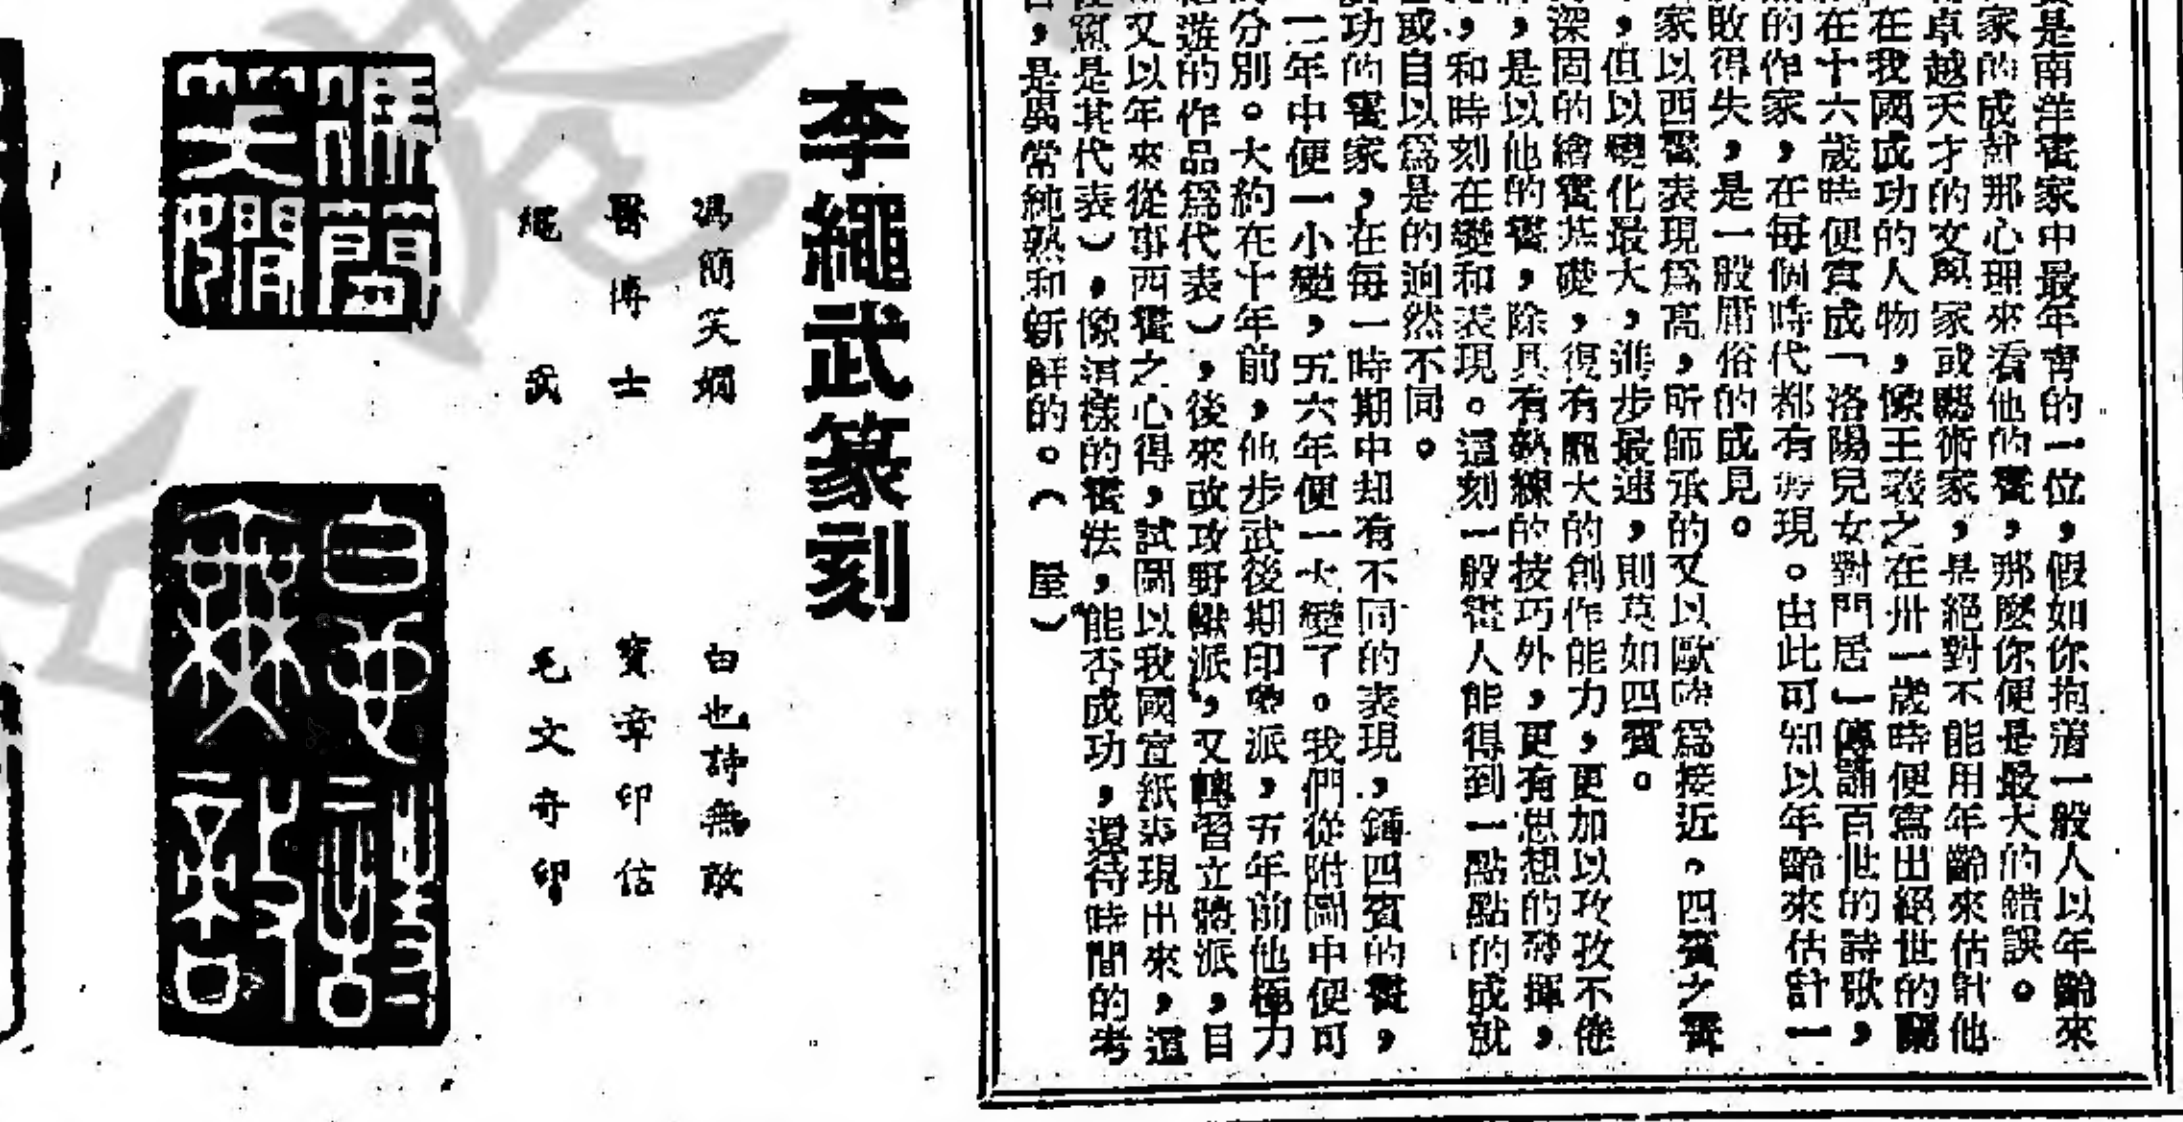 是南洋畫家中最年青的一位，假如你抱着一般人以年齡來
家的成就那心理來看他的畫，那麼你便是最大的錯誤。
卓越天才的文與家或藝術家，是絕對不能用年齡來估計他
在我國成功的人物，像王羲之在卅一歲時便寫出絕世的蘭
在十六歲時便寫成「洛陽兒女對門居」傳誦百世的詩歌，
的作家，在每個時代都有發現。由此可知以年齡來估計一
敗得失，是一般庸俗的成見。
家以西畫表現爲高，所師承的又以歐 爲接近。四賓之畫
，但以變化最大，進步最速，則莫如四賓。
深固的繪畫基礎，復有龐大的創作能力，更加以孜孜不倦
，是以他的畫，除具有熟練的技巧外，更有思想的發揮，
，和時刻在變和表現。這刻一般畫人能得到一點點的成就
或自以爲是的迥然不同。
功的畫家，在每一時期中却有不同的表現，鍾四賓的畫，
一二年中便一小變，五六年便一大變了。我們從附圖中便可
分別。大約在十年前，他步武後期印象派，五年前他極力
遊的作品爲代表），後來改攻野獸派，又轉習立體派，目
又以年來從事西畫之心得，試圖以我國宣紙表現出來，這
是其代表），像這樣的畫法，能否成功，還待時間的考
，是異常純熟和新鮮的。（　屋）
李繩武篆刻
馮簡笑嫻
醫博士
繩武
白也詩無敵
寶章印信
毛文奇印
馮簡笑嫻
白也詩無敵